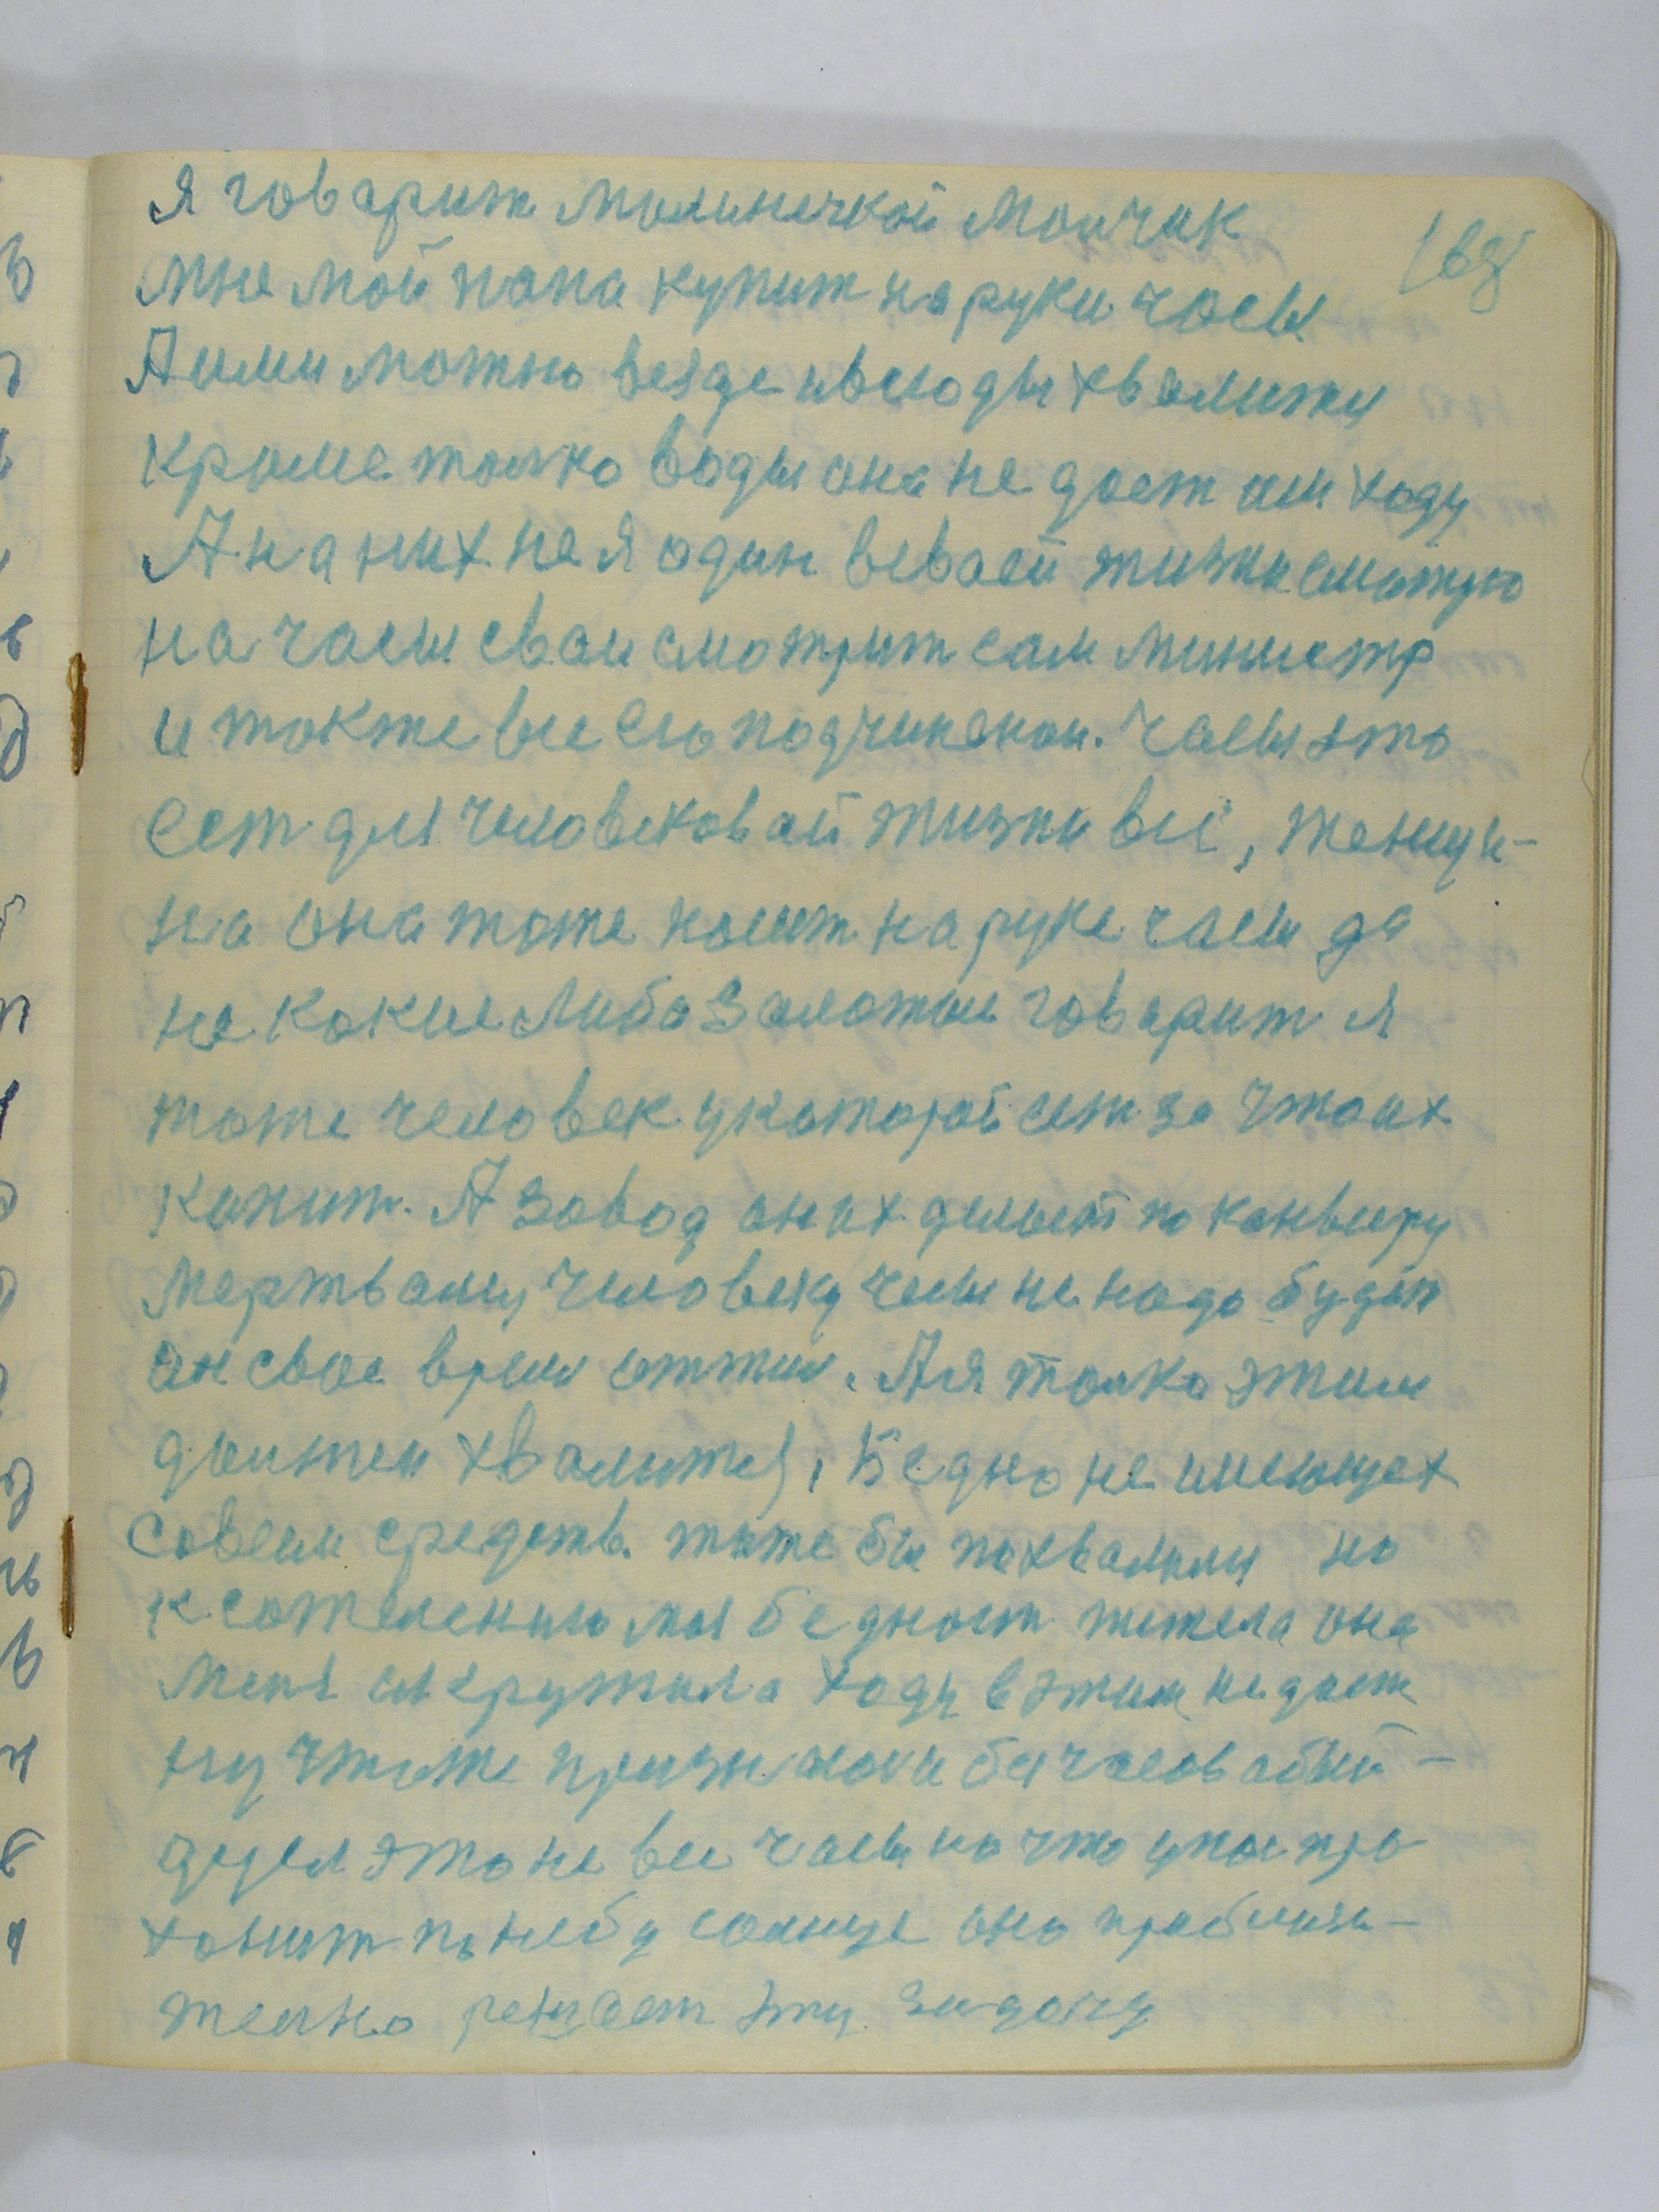 я говарит малинечкой молчик
мне мой папа купит на руки часы
А ими можно везде ивсюды хвалитя
кроме толко воды она не дает им ходу
А на них не я один всваей жизни смотрю
на часы сваи смотрит сам министр
и также все его подчиненаи. Часы это
ест для человековай жизни всё, женщи-
на она тоже носит на руке часы да
не какие либо залотые говарит я
тоже человек укоторой ест за что их
купит. А завод он их делает по конвееру
мертваму человеку часы не надо будит
он свое время отжил. А я толко этим
должен хвалится, Бедно не имеющех
совсем средств. тоже бы похвалилия но
к сожелению моя бедност тежела она
меня окружила ходу в этим не дает
ну что же признаюи бы часов
это не все часы но что унас про
ходит по небу солнце оно проблизи-
телно решает эту задачу